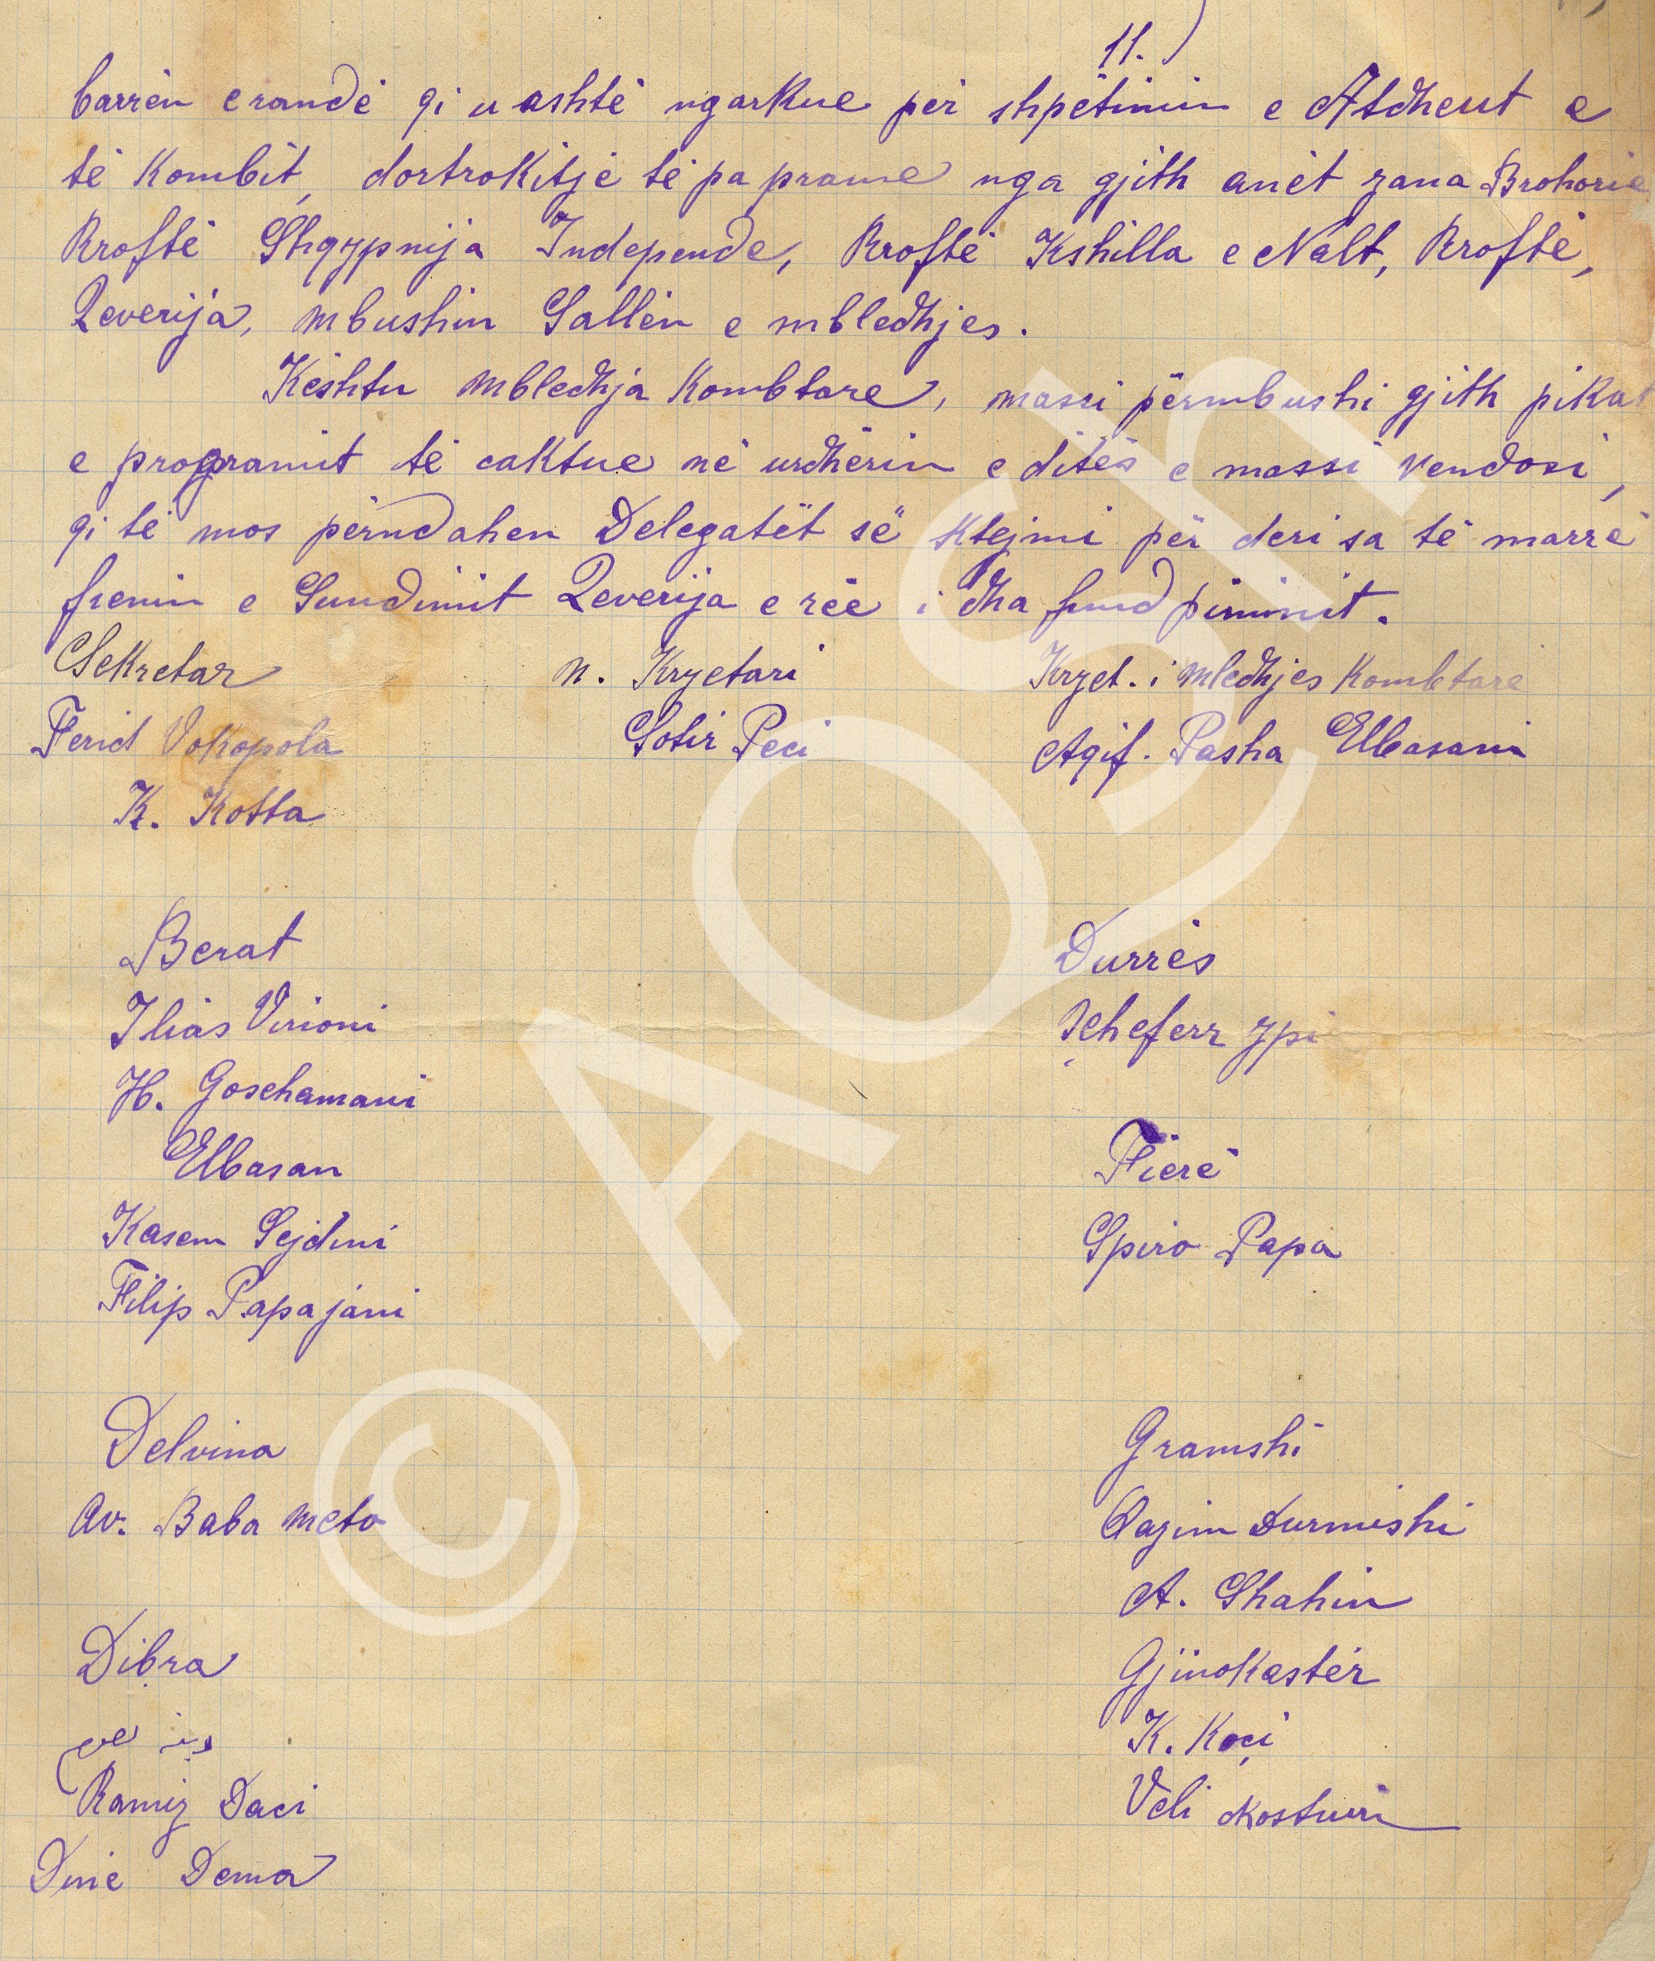 11.)
barrën e randë qi u ashtë ngarkue për shpëtimin e Atdheut e
të Kombit, dortrokitje të pa prame nga gjith anët zana Brohorie
Rroftë Shqypnija Independe, Rroftë Kshilla e Nalt, Rroftë,
Qeverija, mbushin Sallën e mbledhjes.
Keshtu Mbledhja Kombtare, massi përmbushi gjith pikat
e programit të caktue në urdhërin e ditës e massi vendosi,
qi të mos përndahen Delegatët së Ktejmi për deri sa të marrë
frenin e Sundimit Qeverija e rëe i dha fund pinimit.
Sekretar n. Kryetari Kryet. i Mledhjes Kombtare
Ferid Vokopola Sotir Peci Aqif. Pasha Elbasani
K. Kotta
Berat Durrës
Ilias Vrioni Xheferr Ypi
H. Goschamani
Elbasan Fierë
Kasem Sejdini Spiro Papa
Filip Papajani
Delvina Gramshi
Av. Baba Meto Qazim Durmishi
A. Shahin
Dibra Gjinokastër
K. Koçi
Ramiz Daci Veli Kosturi
Dine Dema
© AQSH